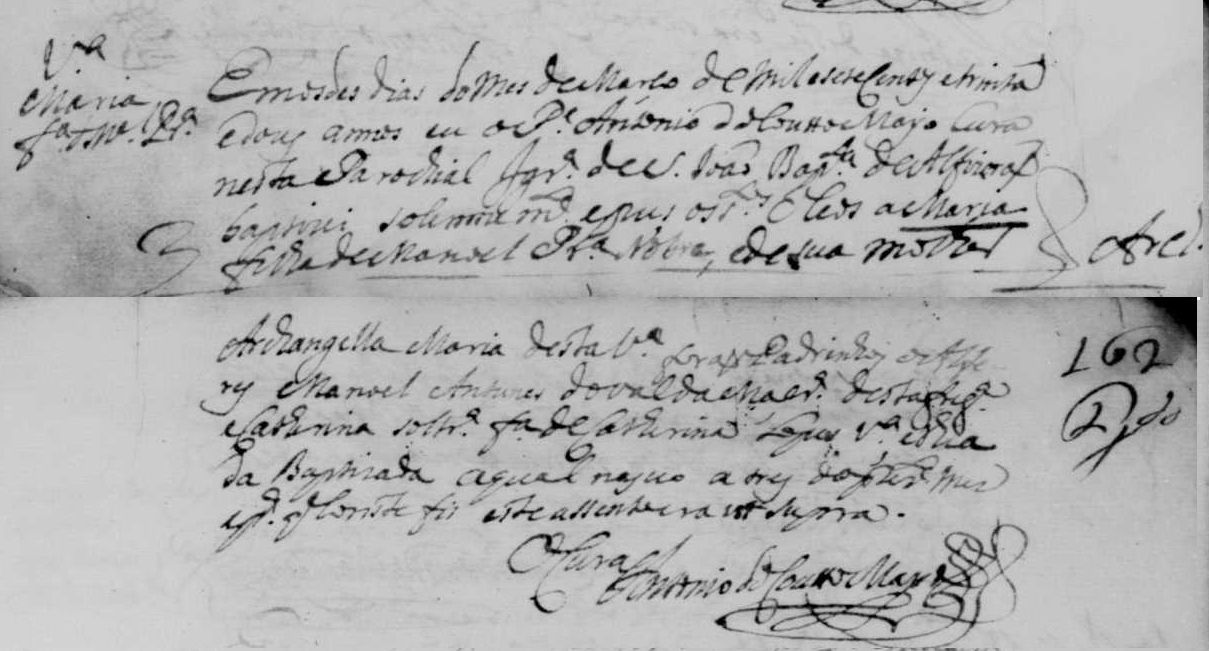 V.ª
Maria
f.ª de M.el Pr.ª
Em os des dias do Mes de Março de Mil e sete Centos e trinta
e dous annos eu o P.e Antonio do Coutto Mayo Cura
nesta Parochial Igr.ª de S. João Bap.ta de Alfeizarão
baptizei solemne m.te e pus os s.tos oleos a Maria
filha de Manoel Pr.ª Nobre, e de sua molher
Arch.
Archangella Maria desta V.ª forão Padrinhos o Alfe
res Manoel Antunes do Val da Mac.ra desta freg.ª
e Catherina soltr.ª f.ª de Catherina V.ª e thia
da Baptizada a qual nasceo a tres do prez.te mes
e p.ª q conste fis este assento era ut supra.
O Cura
Antonio do Coutto Mayo
162